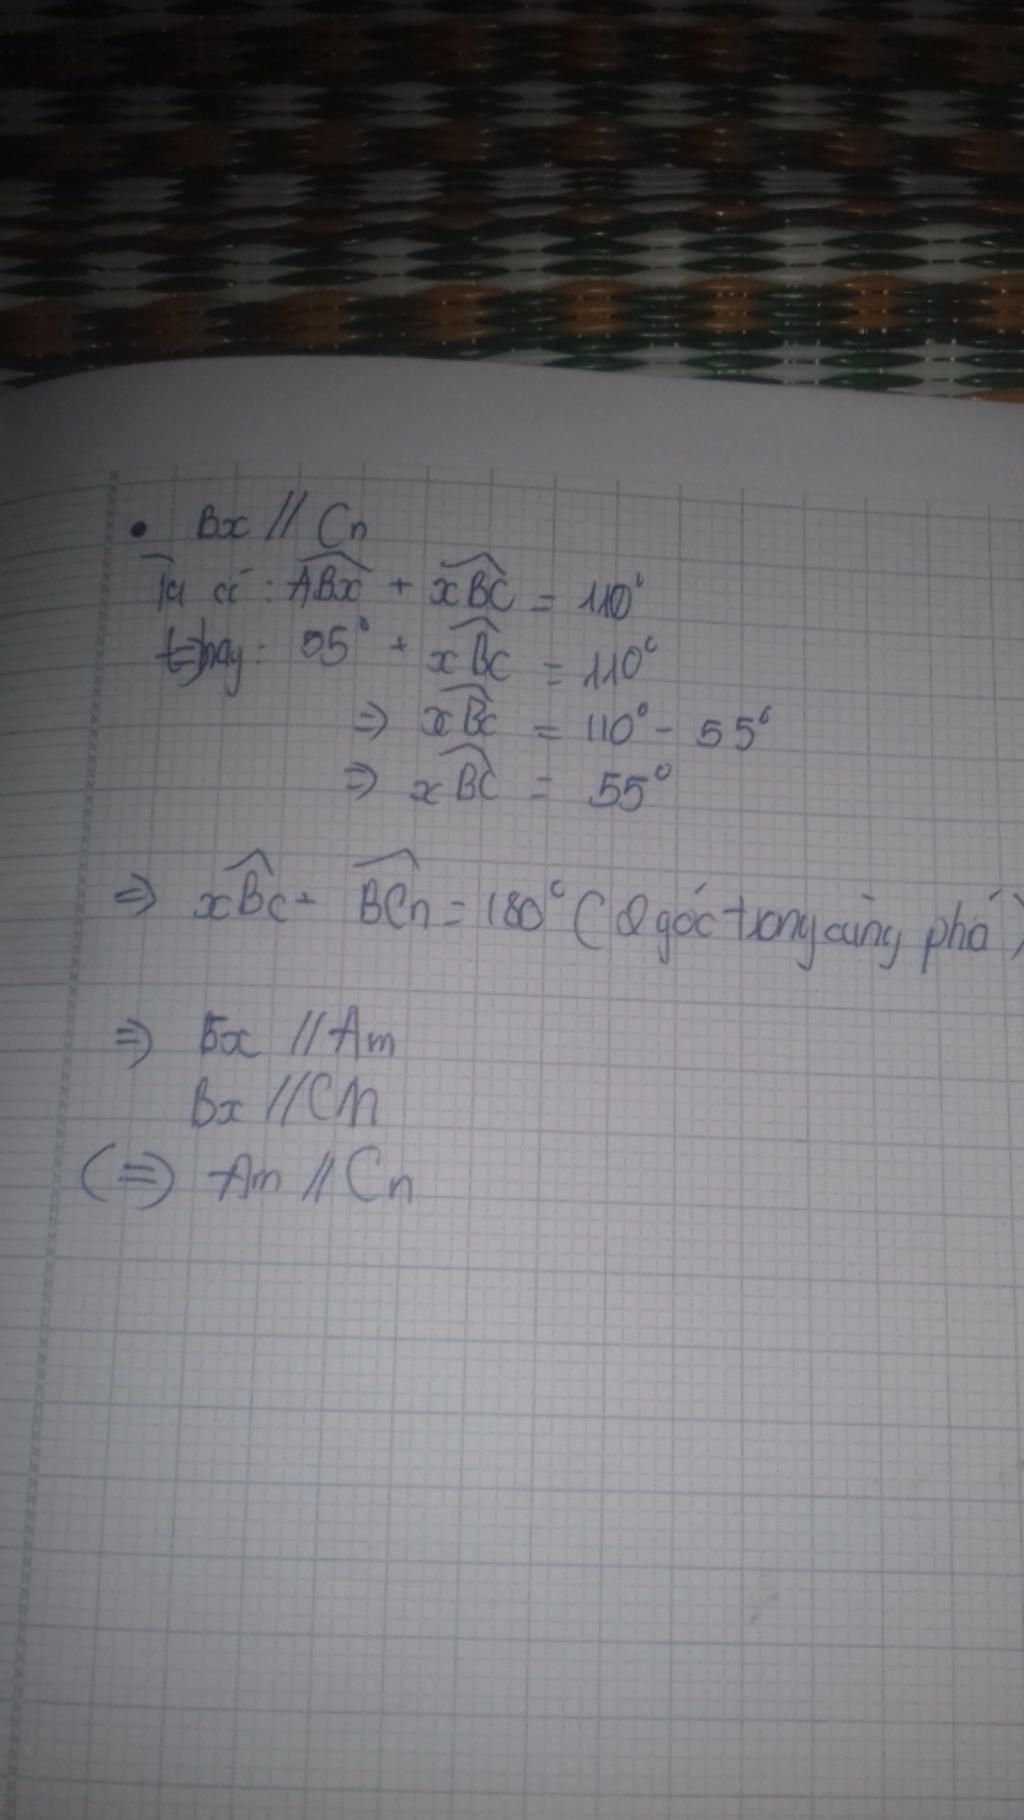 • Bx // Cn
Ta có: ABx + xBC = 110°
hay: 55° + xBC = 110°
⇒ xBC = 110° - 55°
⇒ xBC = 55°
⇒ xBC + BCn = 180° (2 góc trong cùng phá)
⇒ Bx // Am
Bx // Cn
(⇒) Am // Cn